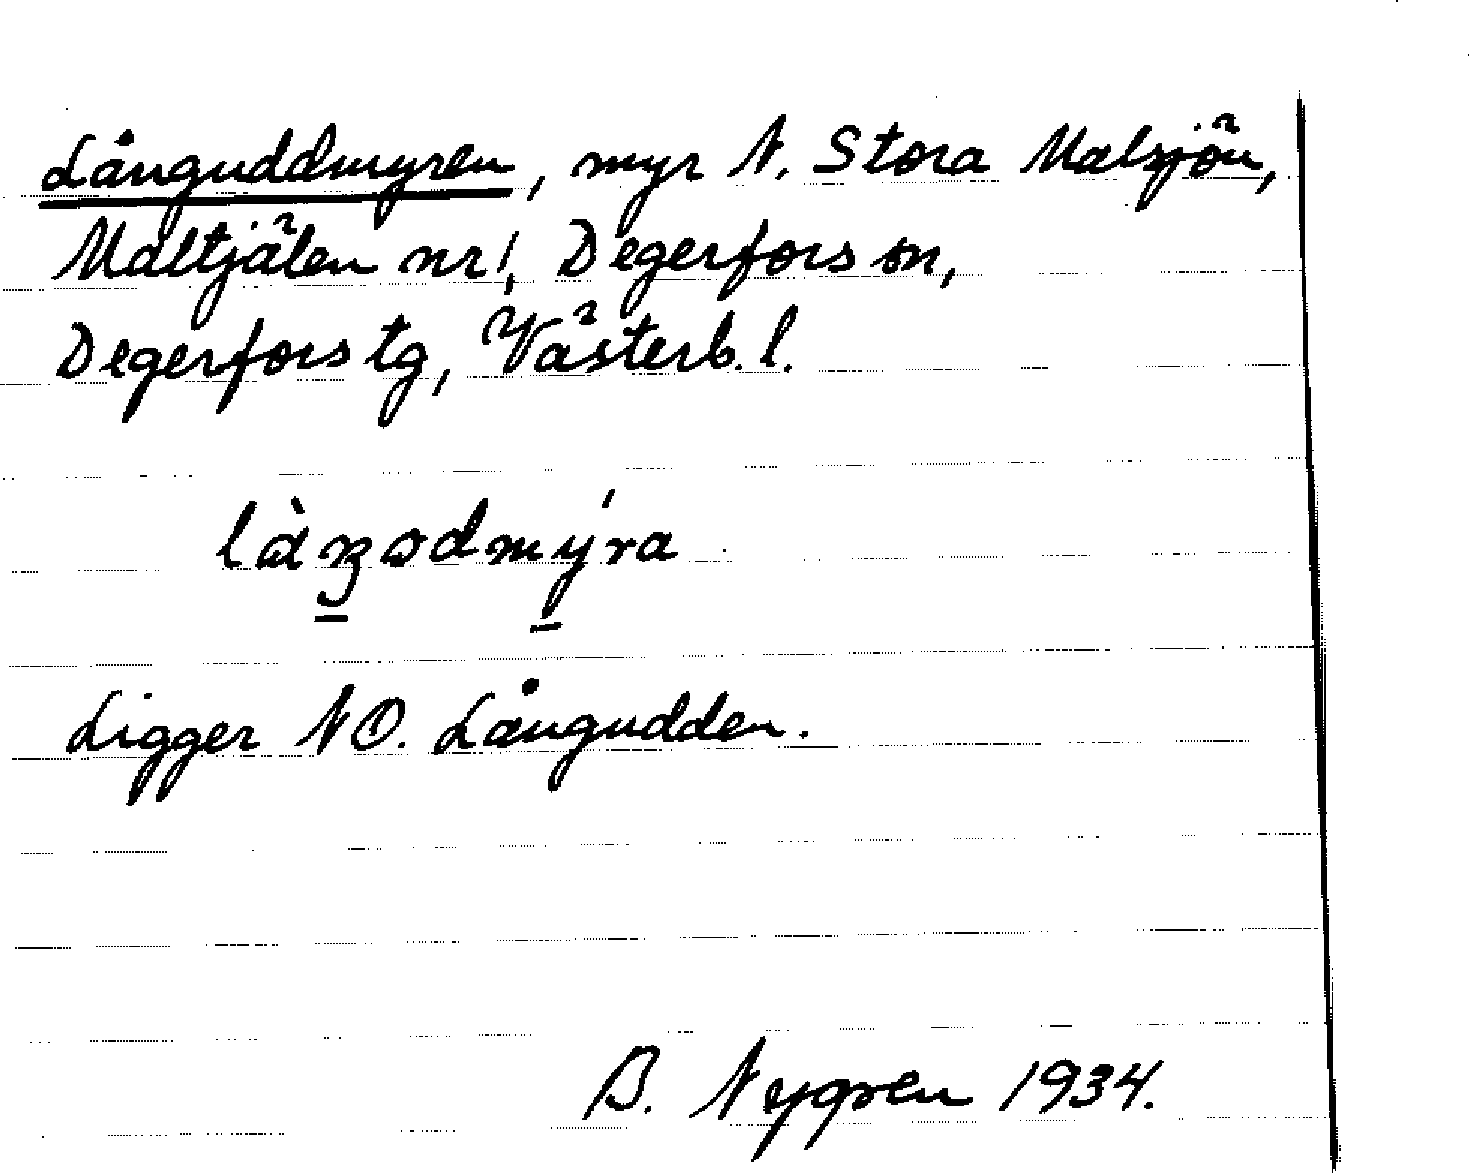 Långuddmyren, myr N. Stora Malsjön,
Maltjälen nr 1, Degerfors sn,
Degerfors tg, Västerb. l.
Ligger NO. Långudden.
B. Nygren 1934.